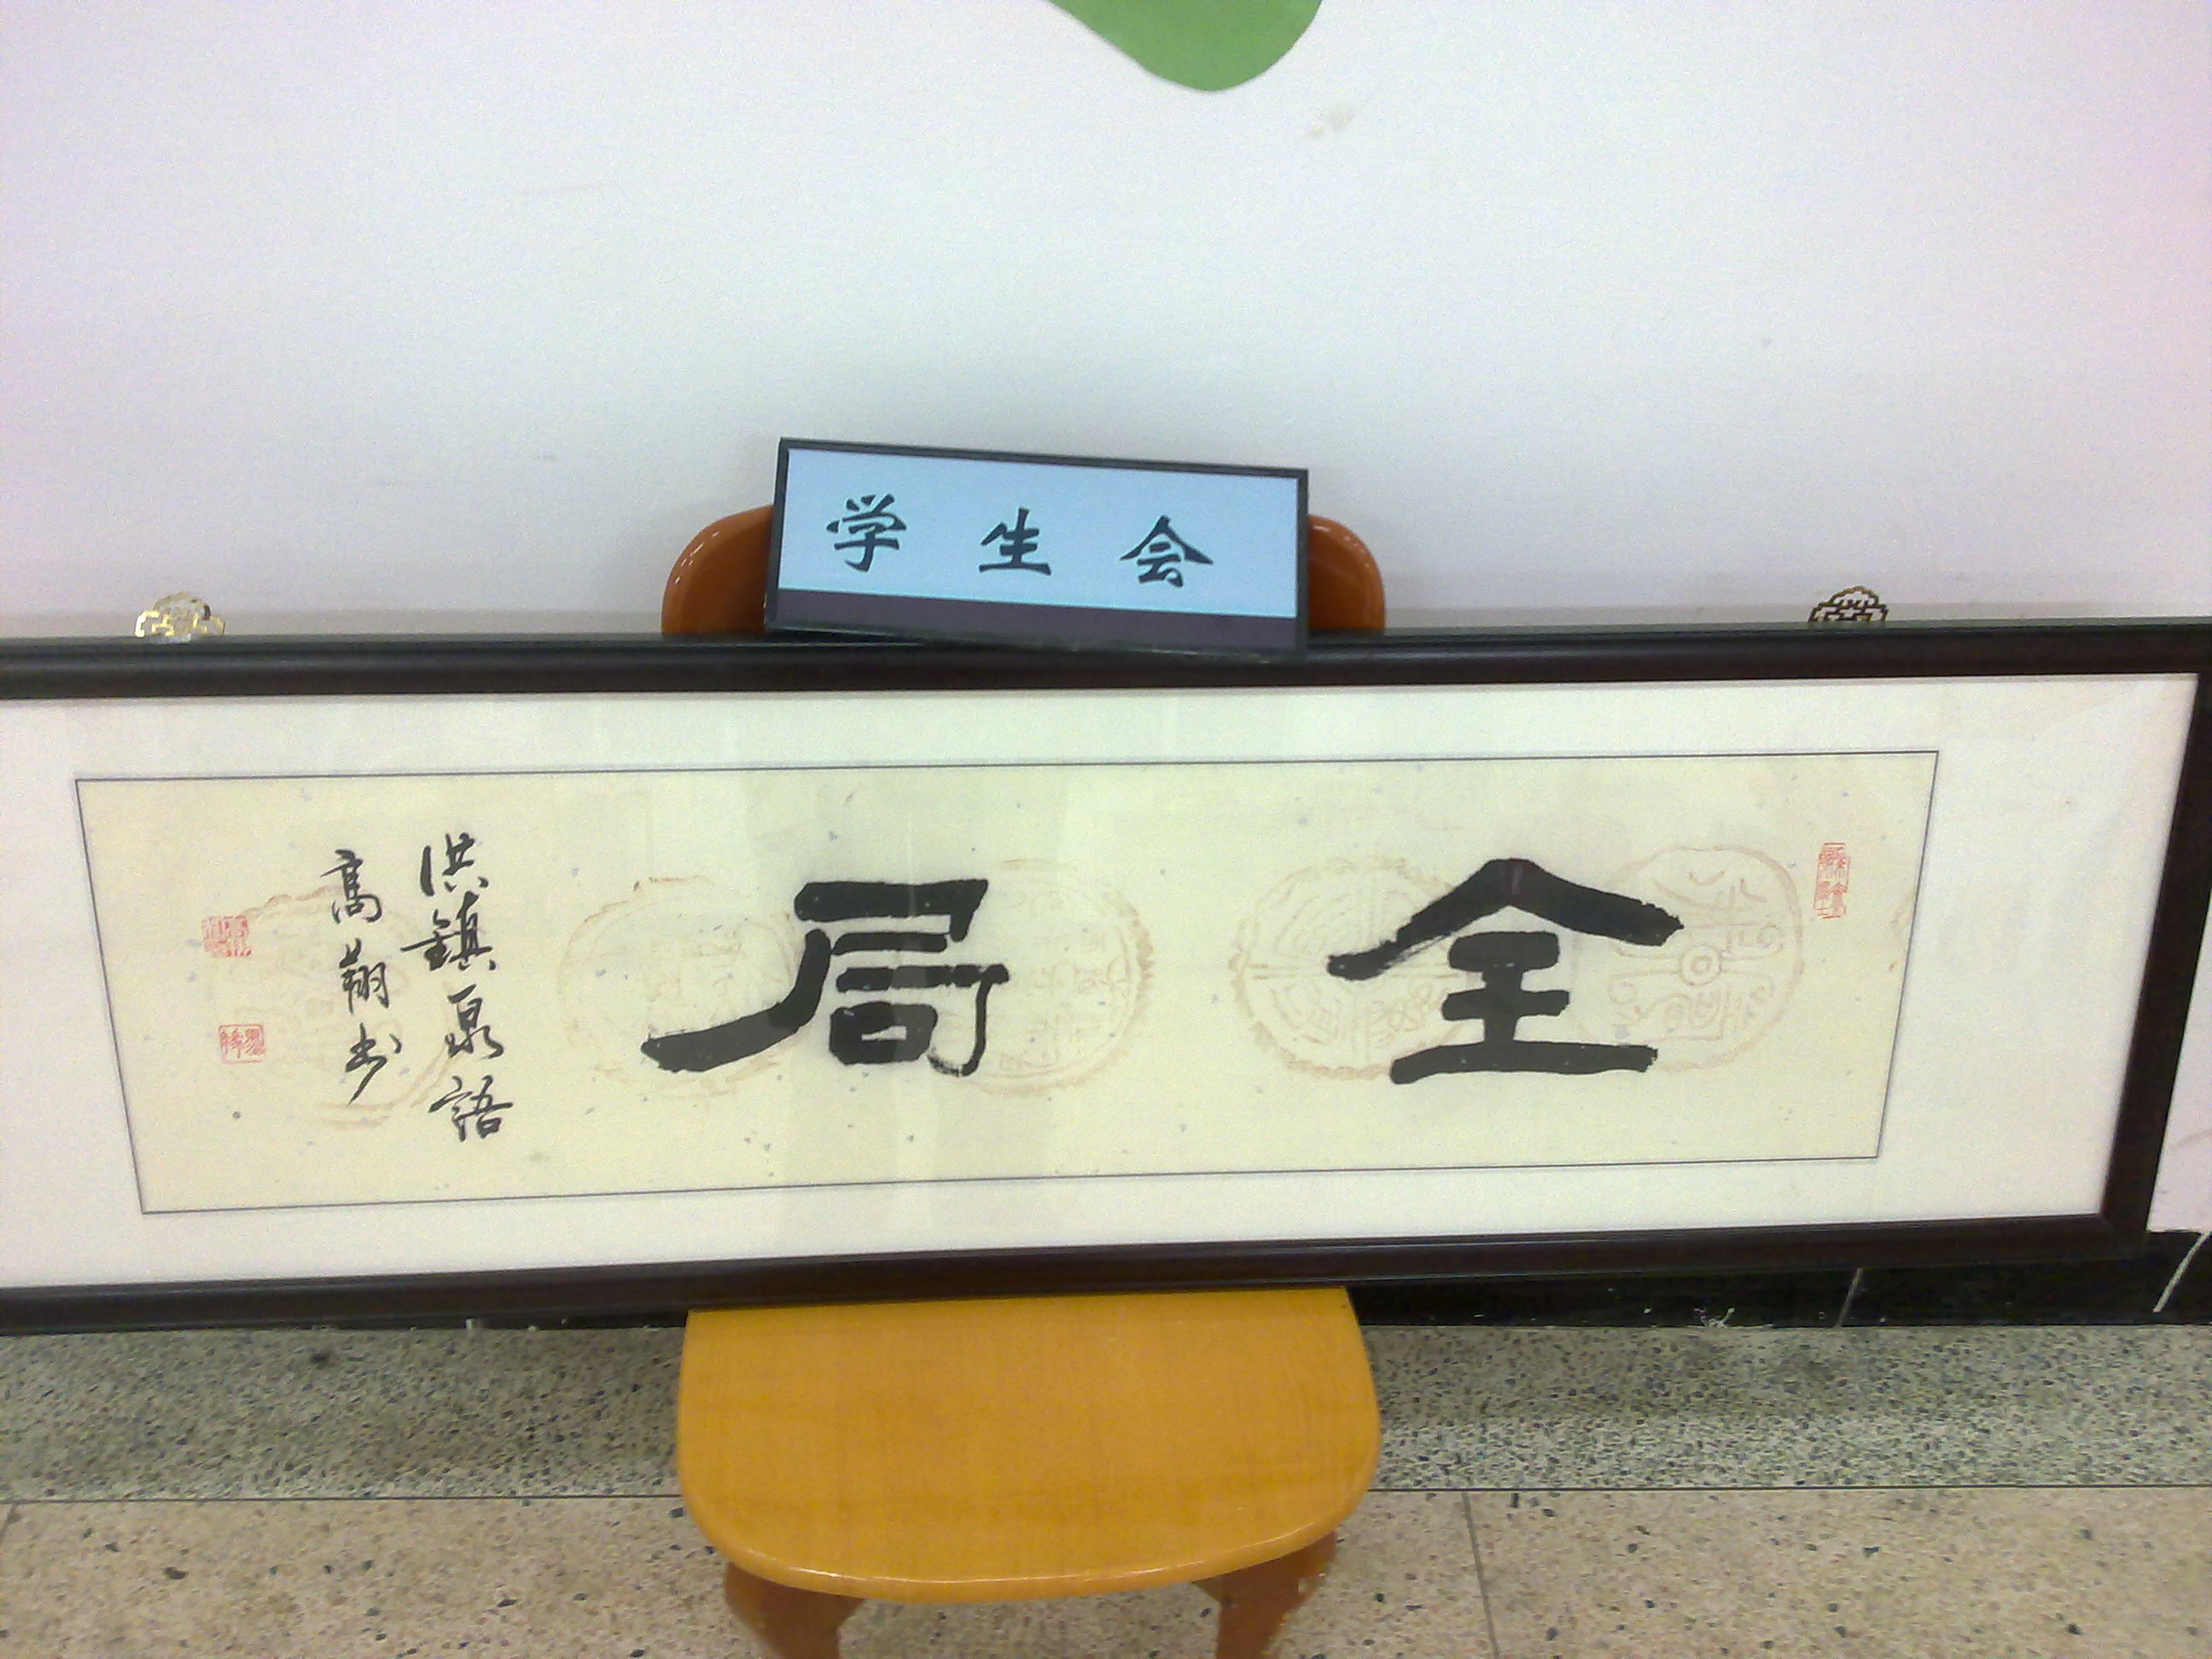 学生会
全局
洪鎮泉語
高翔书